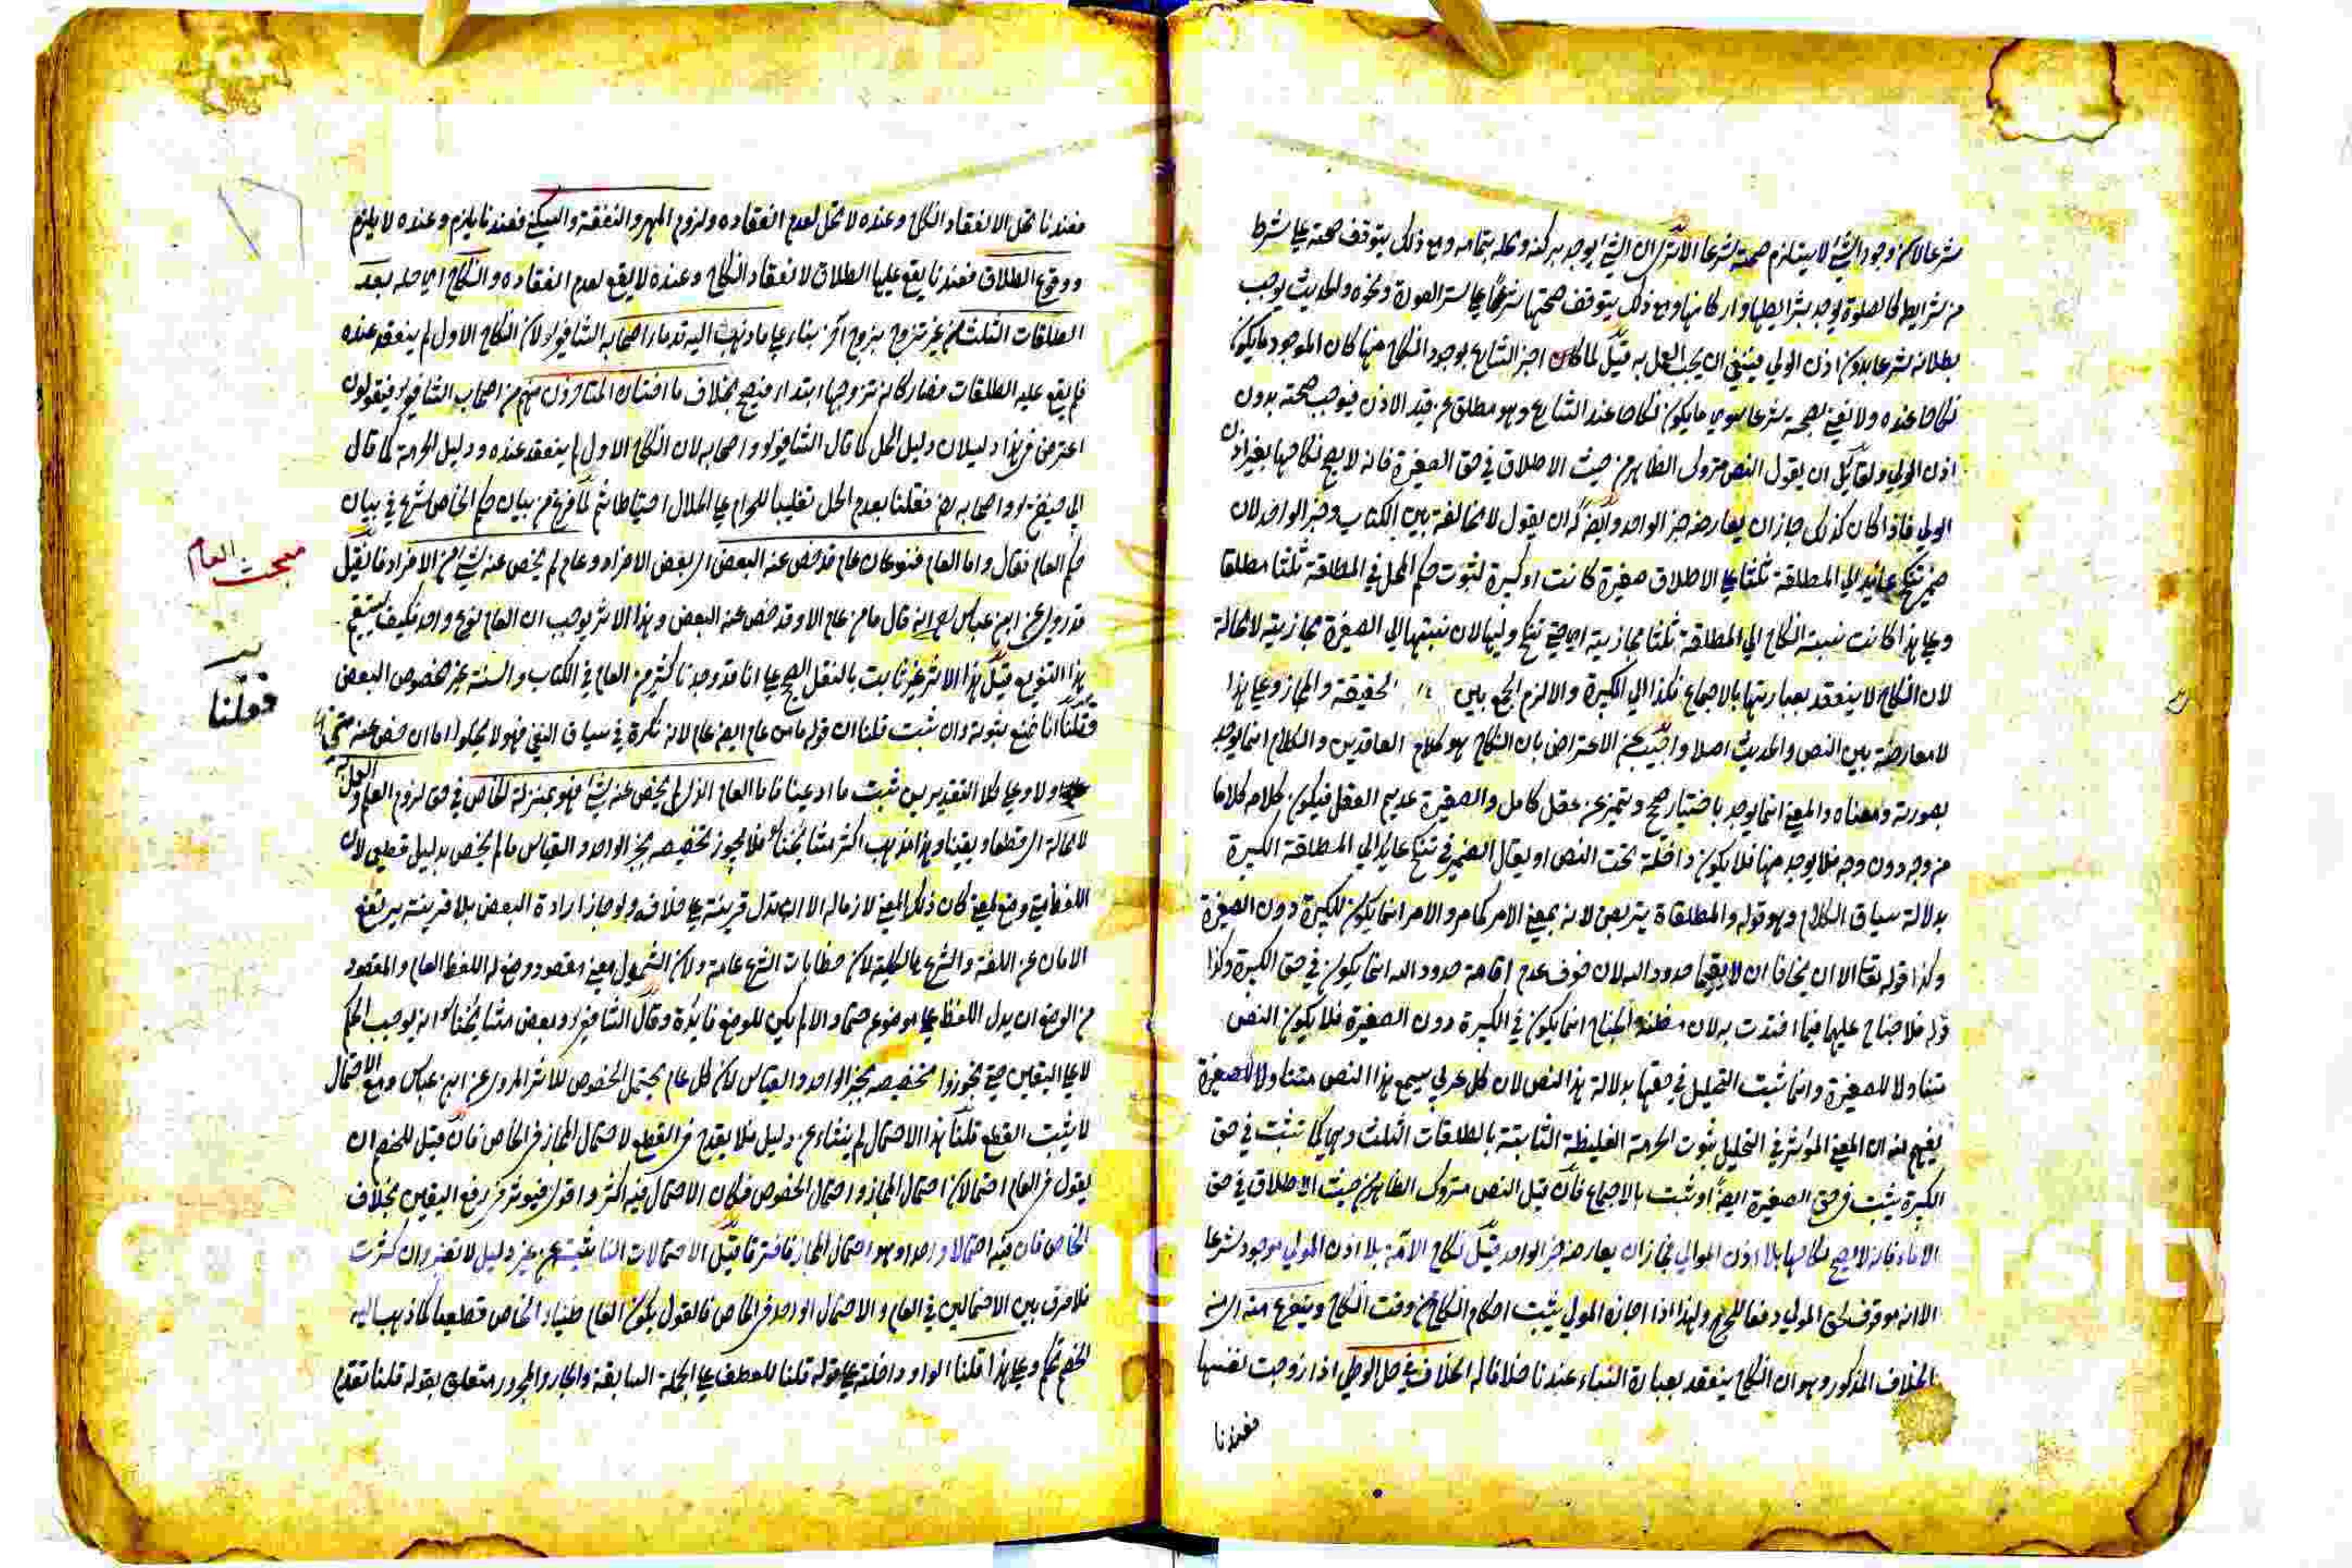 شرعا لان وجود الشئ لا يستلزم صحته شرعا الا ترى ان الشئ يوجد بركنه ومحله بتمامه ومع ذلك يتوقف صحته على شرط
من شرايط كالصلوة يوجد بشرايطها واركانها ومع ذلك يتوقف صحتها شرعا على ستر العورة ونحوه والحديث يوجب
بطلانه شرعا بدون اذن الولي فينبغي ان يجب العمل به قيل لما كان اخبر الشارع بوجود النكاح منها كان الموجود ما يكون
نكاحا عنده ولا نعني بصحته شرعا سوى ما يكون نكاحا عند الشارع وهو مطلق عن قيد الاذن فيوجب صحته بدون
اذن الولي ولقائل ان يقول النص متروك الظاهر من حيث الاطلاق في حق الصغيرة فانه لا يصح نكاحها بغير اذن
الولي فاذا كان كذلك جاز ان يعارضه خبر الواحد وايضا له ان يقول لا مخالفة بين الكتاب وخبر الواحد لان
ضمير تنكح عائد الى المطلقة ثلثا على الاطلاق صغيرة كانت او كبيرة لثبوت حكم المحل في المطلقة ثلثا مطلقا
وعلى هذا كانت نسبة النكاح الى المطلقة ثلثا مجازية اي حتى تنكح وليها لان نسبتها الى الصغيرة مجازية لا محالة
لان النكاح لا ينعقد بعبارتها بالاجماع فكذا الى الكبيرة والا لزم الجمع بين الحقيقة والمجاز وعلى هذا
لا معارضة بين النص والحديث اصلا واجيب عن الاعتراض بان النكاح هو كلام العاقدين والكلام انما يوجد
بصورته ومعناه والمعنى انما يوجد باختيار صحيح وتميز عن عقل كامل والصغيرة عديم العقل فيكون كلامه كلاما
من وجه دون وجه فلا يوجد منها فلا يكون داخلة تحت النص او يقال الضمير في تنكح عائد الى المطلقة الكبيرة
بدلالة سياق الكلام وهو قوله والمطلقاة يتربصن لانه بمعنى الامر كما مر والامر انما يكون للكبيرة دون الصغيرة
وكذا قوله تعا الا ان يخافا ان لا يقيما حدود الله لان خوف عدم اقامة حدود الله انما يكون في حق الكبيرة وكذا
قوله فلا جناح عليهما فيما افتدت به لان مظنة الجناح انما يكون في الكبيرة دون الصغيرة فلا يكون النص
متناولا للصغيرة وانما ثبت التحليل في حقها بدلالة هذا النص لان كل عربي سمع هذا النص متناولا للصغيرة
يفهم منه ان المعنى المؤثر في التحليل ثبوت الحرمة الغليظة الثابتة بالطلقات الثلث وهي كما تثبت في حق
الكبيرة يثبت في حق الصغيرة ايضا او ثبت بالاجماع فان قيل النص متروك الظاهر من حيث الاطلاق في حق
الاماء فانه لا يصح نكاحها بلا اذن الموالي فجاز ان يعارضه خبر الواحد قيل نكاح الامة بلا اذن المولي موجود شرعا
الا انه موقوف لحق المولي دفعا للحرج ولهذا اذا اجازه المولي يثبت احكام النكاح من وقت النكاح ويتفرع منه اي من
الخلاف المذكور وهو ان النكاح ينعقد بعبارة النساء عندنا خلافا له الخلاف في حل الوطي اذا زوجت نفسها
فعندنا
فعندنا يحل لانعقاد النكاح وعنده لا يحل لعدم انعقاده ولزوم المهر والنفقة والسكنى فعندنا يلزم وعنده لا يلزم
ووقوع الطلاق فعندنا يقع عليها الطلاق لانعقاد النكاح وعنده لا يقع لعدم انعقاده والنكاح اي حله بعد
الطلقات الثلث من غير تزوج بزوج آخر بناء على ما ذهب اليه قدماء اصحاب الشافعي لان النكاح الاول لم ينعقد عنده
فلم يقع عليه الطلقات فصار كانه تزوجها ابتداء فيصح بخلاف ما اختاره المتاخرون منهم من اصحاب الشافعي فيقولون
اعترض في هذا دليلان دليل الحل كما قال الشافعي واصحابه لان النكاح الاول لم ينعقد عنده ودليل الحرمة كما قال
ابي حنيفة واصحابه رضه فقلنا بعدم الحل تغليبا للحرام على الحلال احتياطا ثم لما فرغ من بيان حكم الخاص شرع في بيان
حكم العام فقال واما العام فنوعان عام قد خص عنه البعض اي بعض الافراد وعام لم يخص عنه شئ من الافراد فان قيل
قد روي عن ابن عباس انه قال ما من عام الا وقد خص عنه البعض وهذا الاثر يوجب ان العام نوع واحد فكيف يستقيم
هذا التنويع قيل هذا الاثر غير ثابت بالنقل الصحيح على انا قد وجدنا كثير من العام في الكتاب والسنة غير مخصوص البعض
فقلنا انا نمنع ثبوته وان ثبت قلنا ان قوله ما من عام ايضا عام لانه نكرة في سياق النفي فهو لا يخلو اما ان خص عنه شئ
اولا وعلى كلا التقديرين ثبت ما ادعينا فاما العام الذي لم يخص عنه شئ فهو بمنزلة الخاص في حق لزوم العلم والعمل به
لا محالة اي قطعا ويقينا وهذا مذهب اكثر مشايخنا فلا يجوز تخصيصه بخبر الواحد والقياس ما لم يخص بدليل قطعي لان
اللفظ متى وضع لمعنى كان ذلك المعنى لازما له الا ان تدل قرينة على خلافه ولو جاز ارادة البعض بلا قرينة يرتفع
الامان عن اللغة والشرع بالكلية لان خطابات الشرع عامة ولان الشمول معنى مقصود وضع له اللفظ العام والمقصود
من الوضع ان يدل اللفظ على موضوعه حتما والا لم يكن للوضع فائدة وقال الشافعي وبعض مشايخنا انه يوجب الحكم
لا على اليقين حتى يجوزوا تخصيصه بخبر الواحد والقياس لان كل عام يحتمل الخصوص للاثر المروي عن ابن عباس ومع الاحتمال
لا يثبت القطع قلنا هذا الاحتمال لم ينشاء عن دليل فلا يقدح في القطع لاحتمال المجاز في الخاص فان قيل للخصم ان
يقول في العام احتمالان احتمال المجاز واحتمال الخصوص فكان الاحتمال فيه اكثر واقوى فيؤثر في رفع اليقين بخلاف
الخاص فان فيه احتمالا واحدا وهو احتمال المجاز فافترقا قيل الاحتمالات الناشئة عن غير دليل لا تعتبر وان كثرت
فلا فرق بين الاحتمالين في العام والاحتمال الواحد في الخاص فالقول بكون العام ظنيا والخاص قطعيا كما ذهب اليه
الخصم تحكم وعلى هذا قلنا الواو داخلة على قوله قلنا للعطف على الجملة السابقة والجار والمجرور متعلق بقوله قلنا تقدم
مبحث العام
فقلنا